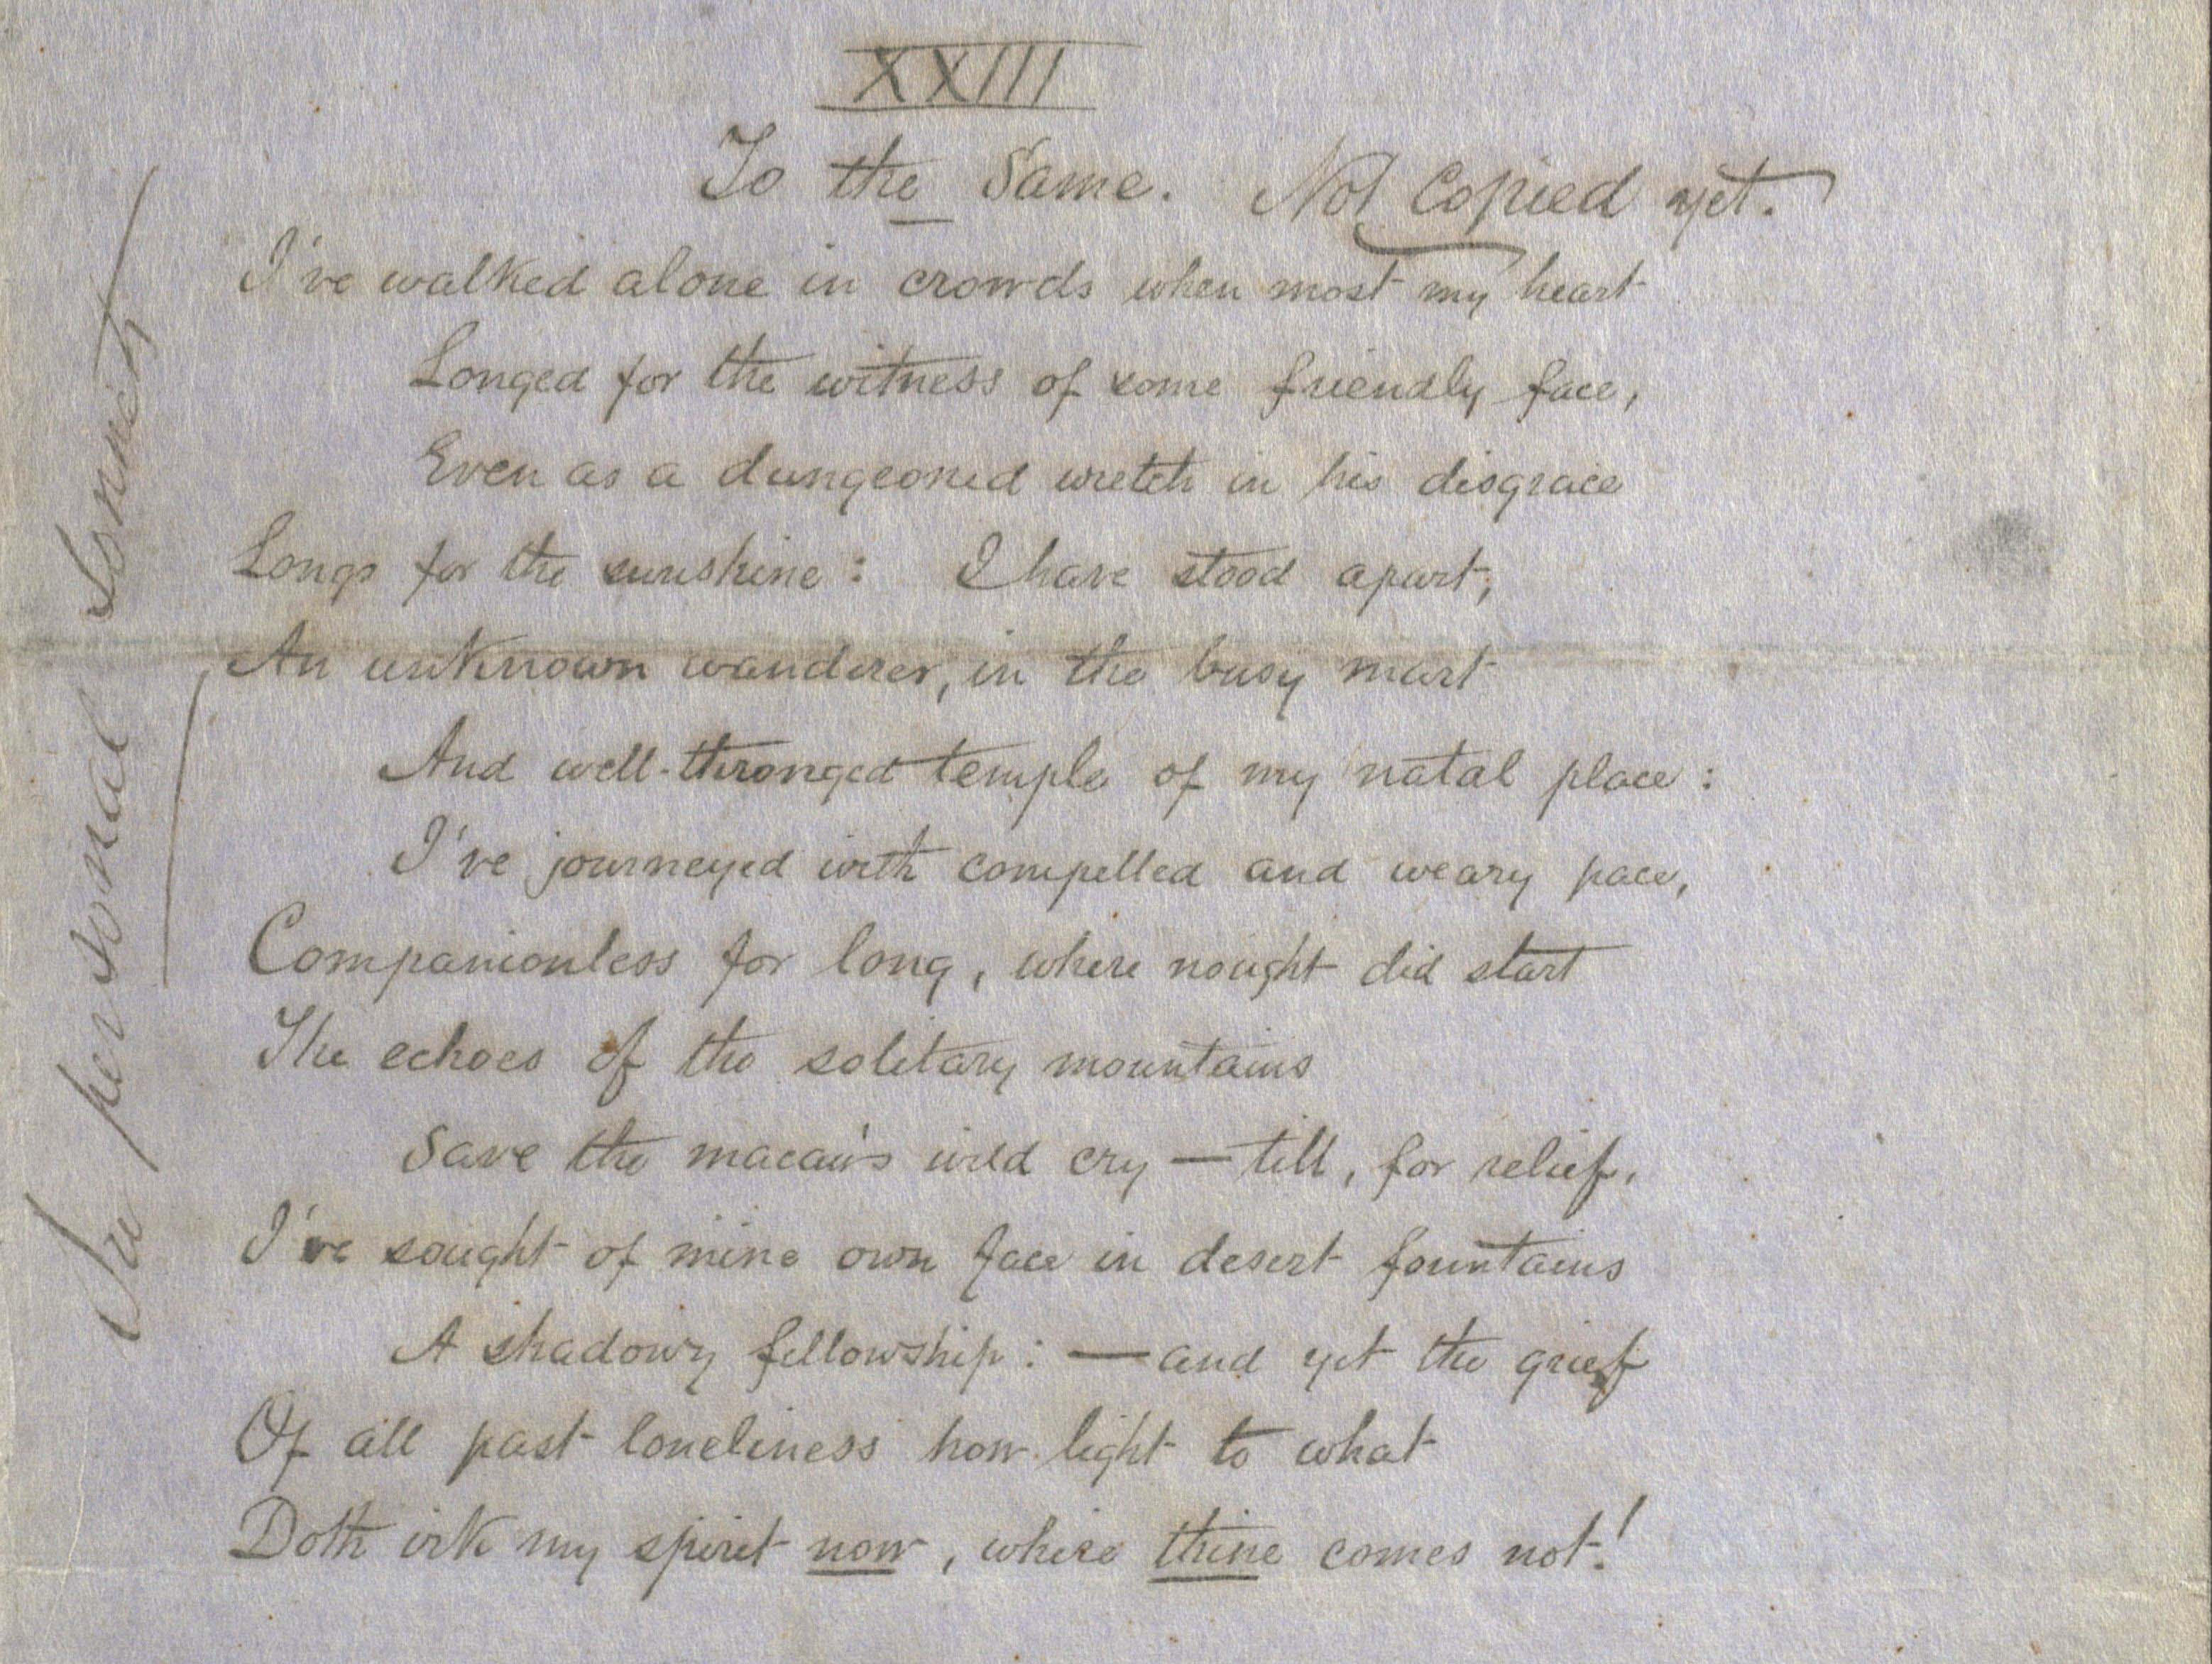 XXIII
To the Same. Not Copied yet.
I've walked alone in crowds when most my heart
Longed for the witness of some friendly face,
Even as a dungeoned wretch in his disgrace
Longs for the sunshine: I have stood apart,
An unknown wanderer, in the busy mart
And well-thronged temple of my natal place:
I've journeyed with compelled and weary pace,
Companionless for long, where nought did start
The echoes of the solitary mountains
Save the macaw's wild cry — till, for relief,
I've sought of mine own face in desert fountains
A shadowy fellowship: — and yet the grief
Of all past loneliness how light to what
Doth irk my spirit now, where thine comes not!
personal Sonnets